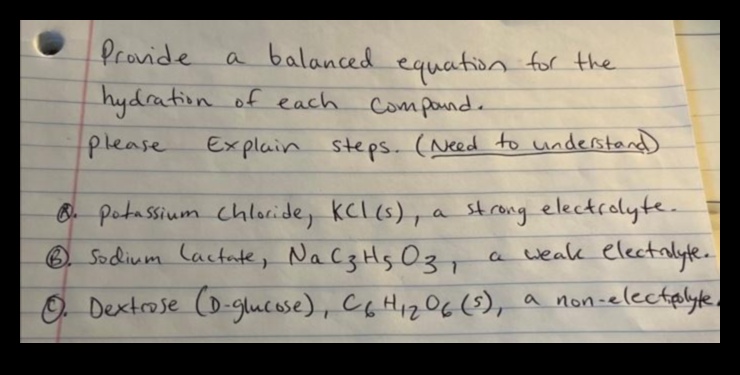 Provide a balanced equation for the
hydration of each compound.
please Explain steps. (Need to understand)
Ⓐ. potassium chloride, KCl(s), a strong electrolyte.
Ⓑ. Sodium Lactate, NaC3H5O3, a weak electrolyte.
Ⓒ. Dextrose (D-glucose), C6H12O6(s), a non-electrolyte.